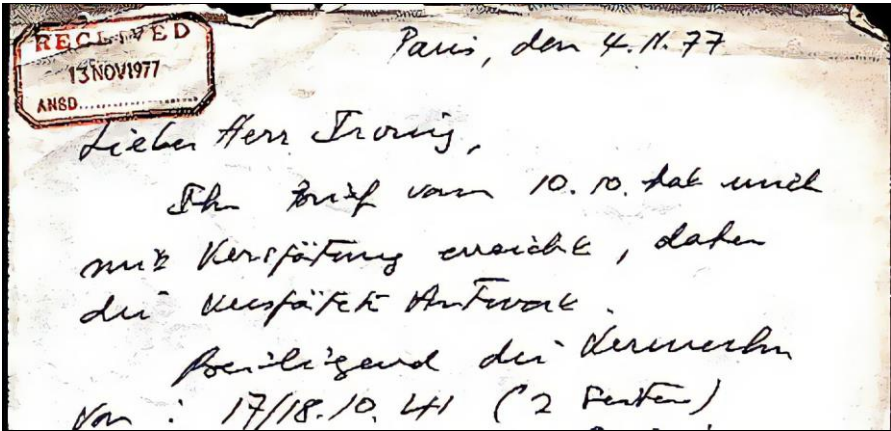 RECEIVED
13 NOV 1977
ANSD..............
Paris, den 4.11.77
Lieber Herr Irving,
Ihr Brief vom 10.10. hat mich
mit Verspätung erreicht, daher
die verspätete Antwort.
Beiliegend die Vermerke
von : 17/18.10.41 (2 Seiten)